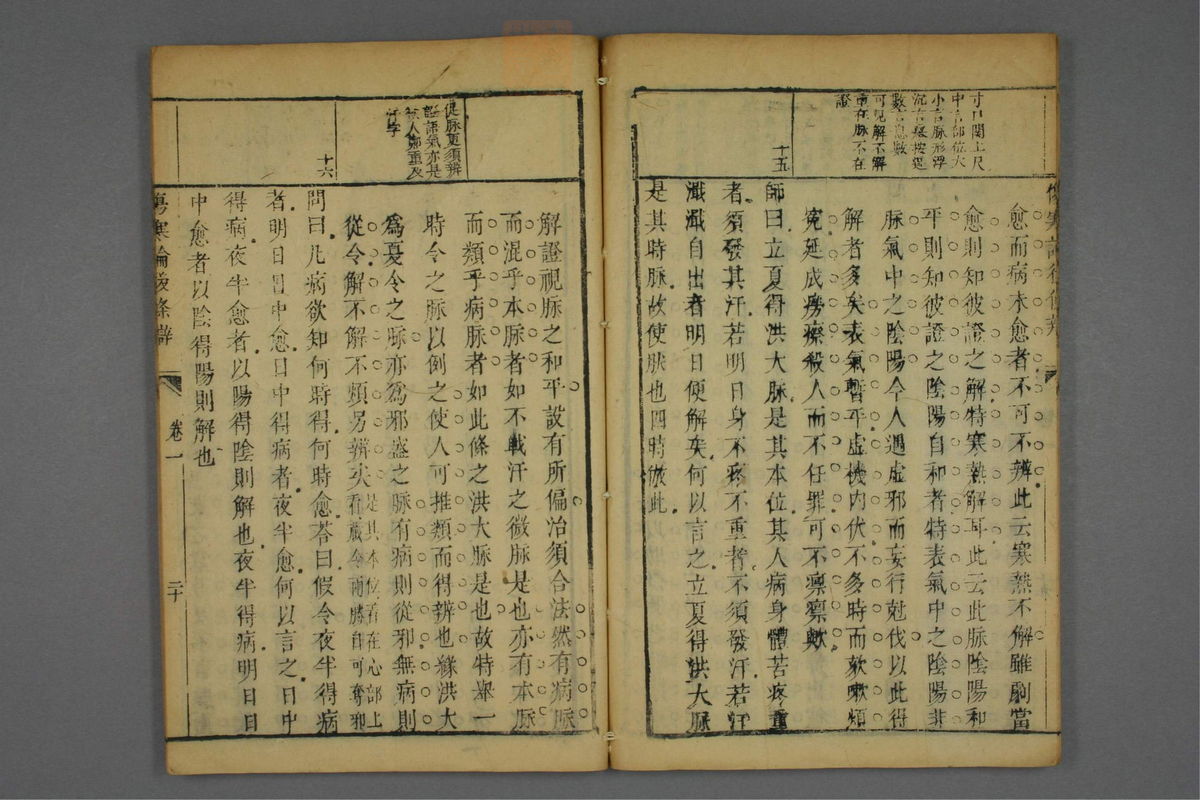 寸口關上尺
中言部位大
小言脉形浮
沉言輕按遲
數言息數
可見解不解
重在脉不在
證
十五
愈而病本愈者不可不辨此云寒熱不解雖劇當
愈則知彼證之解特寒熱解耳此云此脈陰陽和
平則知彼證之陰陽自和者特表氣中之陰陽非
脉氣中之陰陽今人遇虛邪而妄行尅伐以此得
解者多矣表氣暫平虛機内伏不多時而欬嗽煩
寃延成房瘵殺人而不任罪可不凛凛歟
師曰立夏得洪大脉是其本位其人病身體苦疼重
者須發其汗若明日身不疼不重者不須發汗若汗
濈濈自出者明日便解矣何以言之立夏得洪大脉
是其時脉故使然也四時倣此
促脉更須辨
語氣亦是
人鄭重及
汗字
十六
解證視脉之和平設有所偏治須合法然有病脉
而混乎本脉者如不戰汗之微脉是也亦有本脉
而類乎病脉者如此條之洪大脉是也故特舉一
時令之脉以例之使人可推類而得辨也緣洪大
爲夏令之脉亦爲邪盛之脉有病則從邪無病則
從令解不解不頻另辨矣是其本位看在心部上
看藏令兩勝自可奪邪
問曰凡病欲知何時得何時愈荅曰假令夜半得病
者明日日中愈日中得病者夜半愈何以言之日中
得病夜半愈者以陽得陰則解也夜半得病明日日
中愈者以陰得陽則解也
傷寒論後條辯
卷一
二十